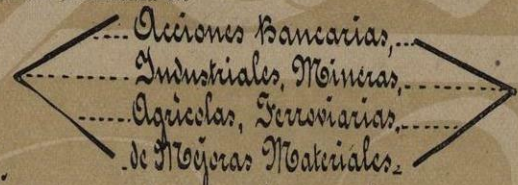 Acciones Bancarias,
Industriales, Mineras,
Agricolas, Ferroviarias,
de Mejoras Materiales.